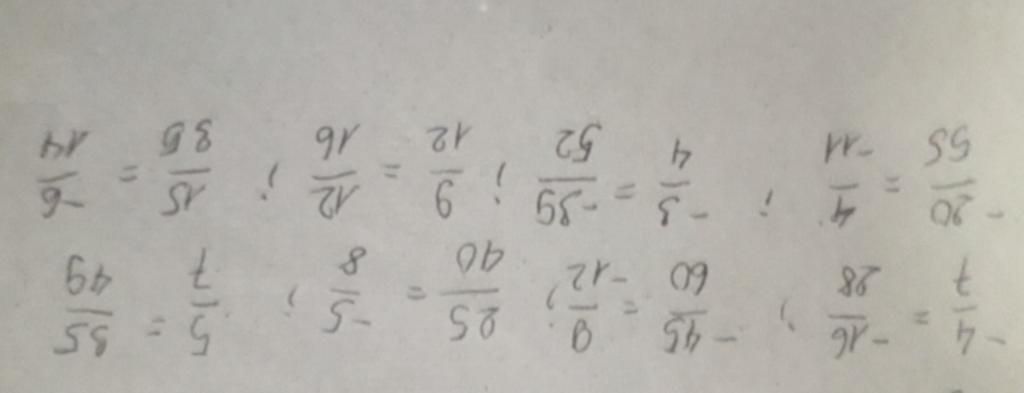 -4/7 = -16/28 ; -45/60 = 9/-12 ; 25/40 = -5/8 ; 5/7 = 35/49
-20/55 = 4/-11 ; -3/4 = -39/52 ; 9/12 = 12/16 ; 15/35 = -6/14